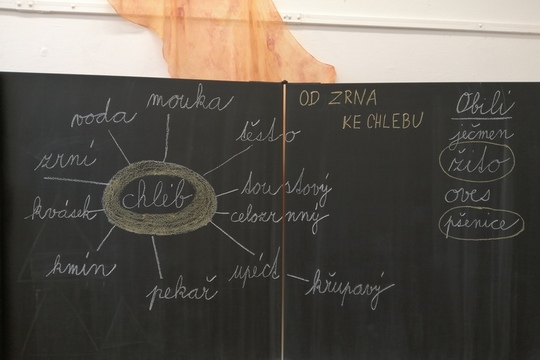 mouka
voda
těsto
zrní
chléb
toustový
kvásek
celozrnný
kmín
upéct
křupavý
pekař
OD ZRNA
KE CHLEBU
Obilí
ječmen
žito
oves
pšenice